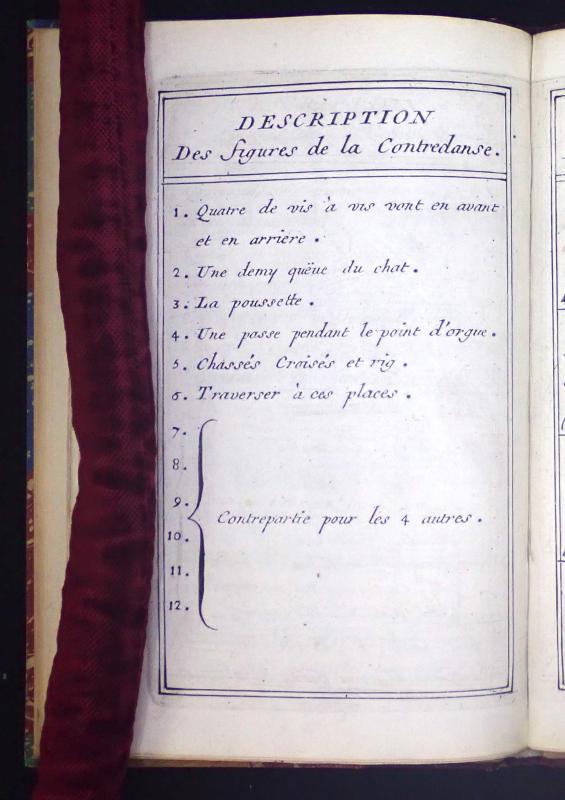 DESCRIPTION
Des figures de la Contredanse.
1. Quatre de vis à vis vont en avant
et en arriere.
2. Une demy queüe du chat.
3. La poussette.
4. Une passe pendant le point d'orgue.
5. Chassés Croisés et rig.
6. Traverser à ces places.
7.
8.
9.
Contrepartie pour les 4 autres.
10.
11.
12.